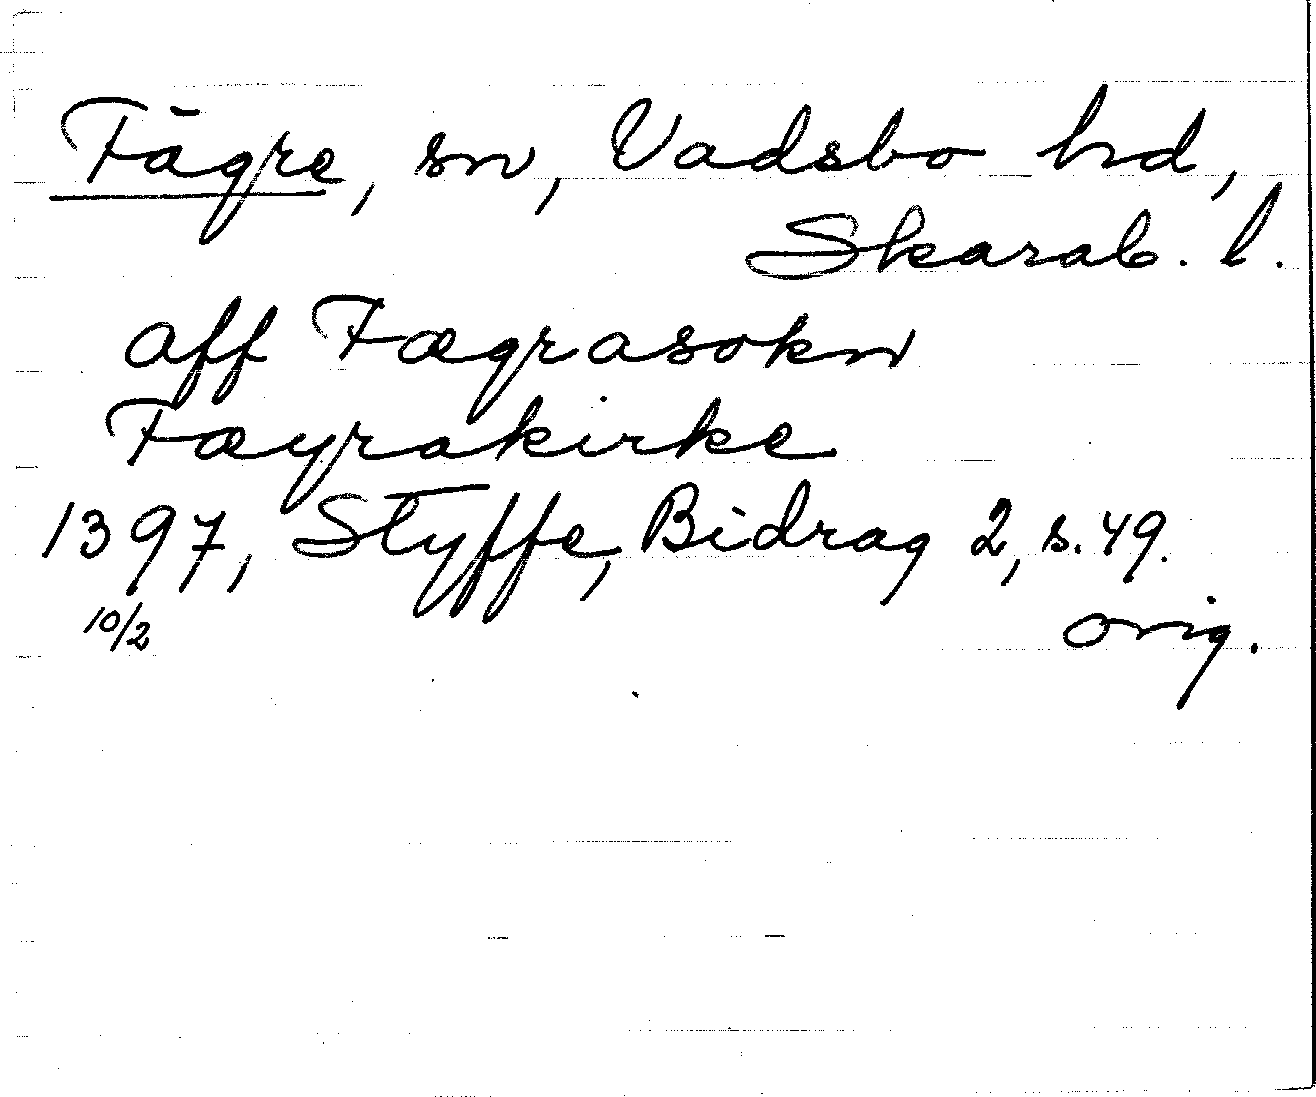 Fägre, sn, Vadsbo hd,
Skarab. l.
aff Fægrasokn
Fæyrakirke
1397, Styffe, Bidrag 2, s. 49.
10/2 orig.